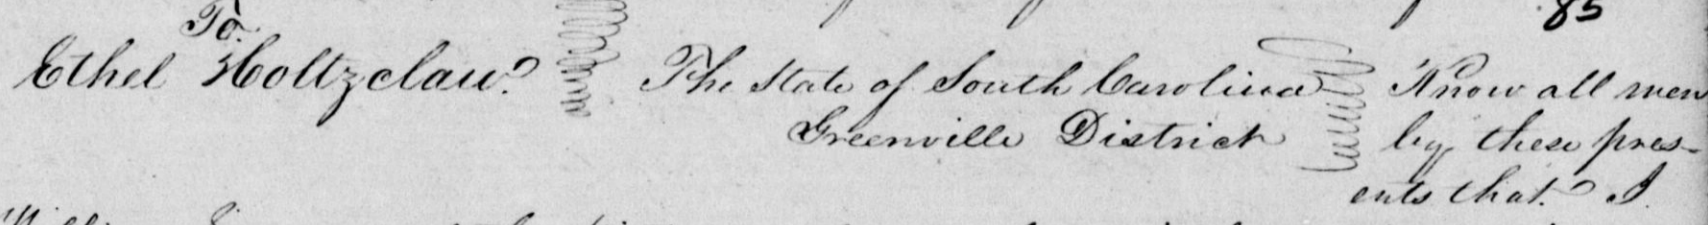 To
85
Ethel Holtzclaw
The State of South Carolina
Greenville District
Know all men
by these pres-
ents that I